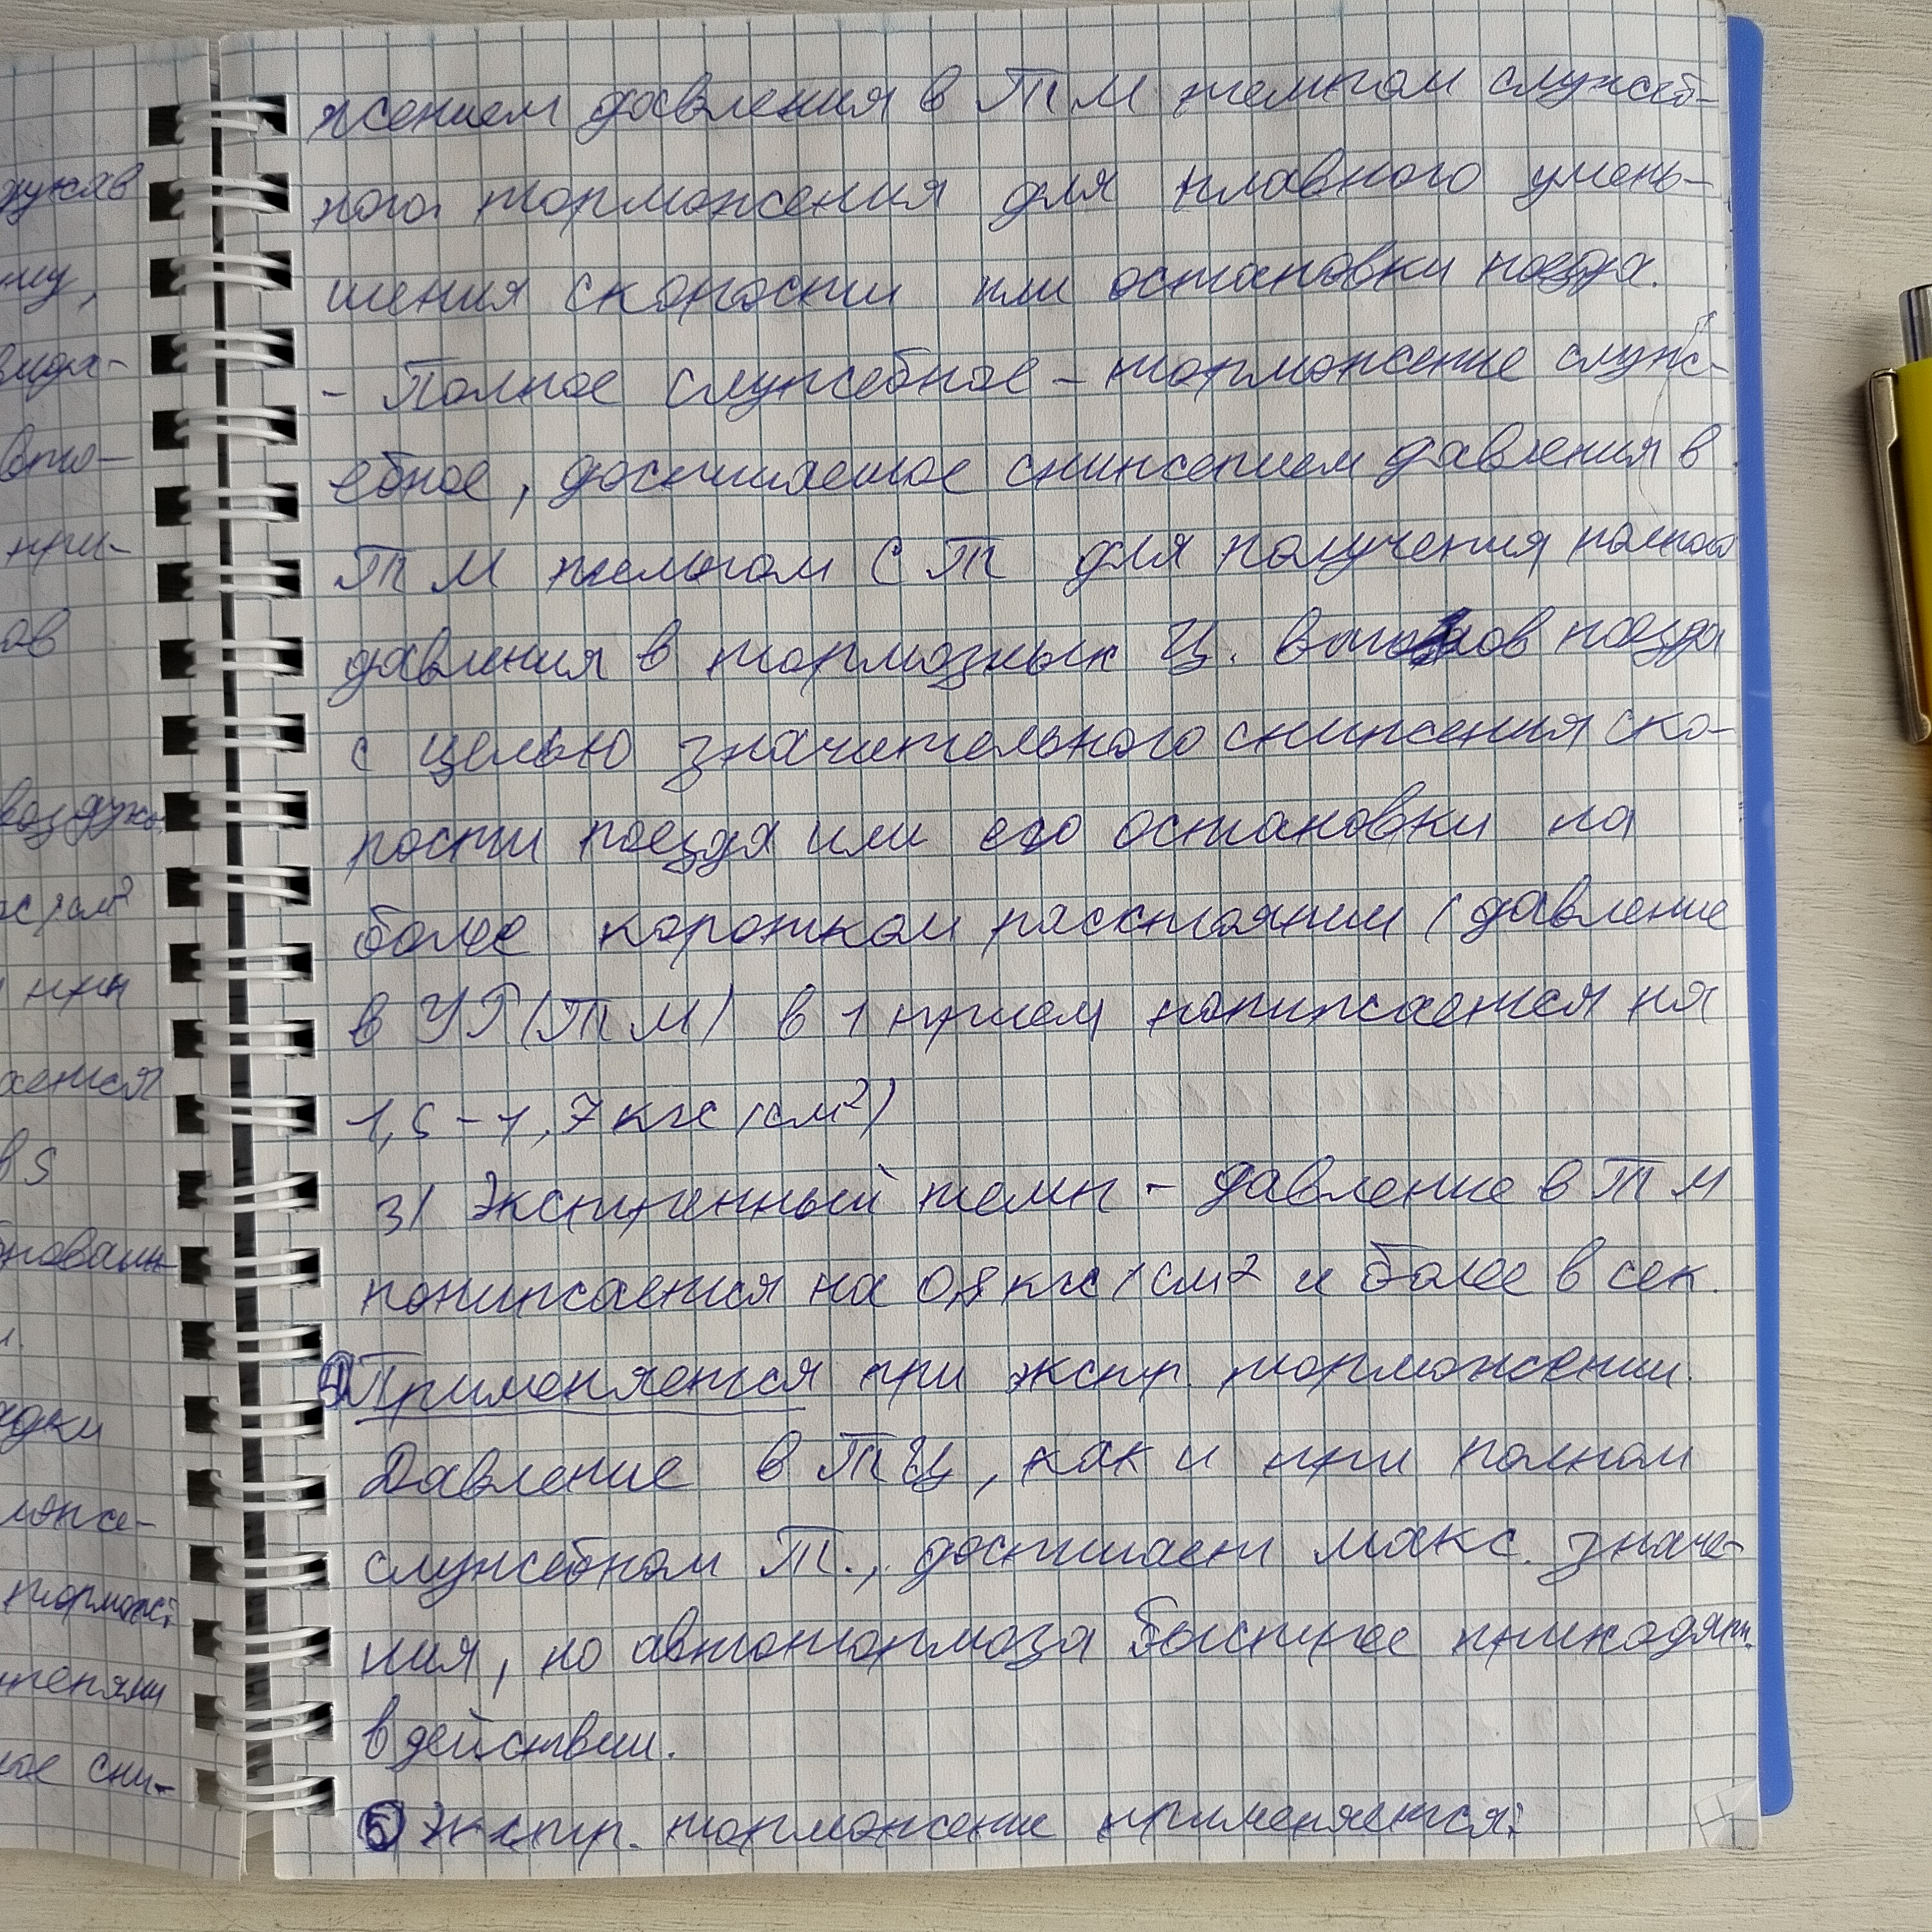 жением давления в ТМ темпом служеб-
ного торможения для плавного умень-
шения скорости или остановки поезда.
- Полное служебное - торможение служ-
ебное, достигаемое снижением давления в
ТМ темпом СТ для получения полного
давления в тормозных Ц. вагонов поезда
с целью значительного снижения ско-
рости поезда или его остановки на
более коротком расстоянии (давление
в УР (ТМ) в 1 прием понижается на
1,5 - 1,7 кгс/см²)
3) Экстренный темп - давление в ТМ
понижается на 0,8 кгс/см² и более в сек.
Применяется при экстр. торможении.
Давление в ТЦ, как и при полном
служебном Т., достигает макс. значе-
ния, но автотормоза быстрее приходят
в действии.
5) Экстр. торможение применяется:
рукав
му,
вида-
при-
ов
воздух.
кгс/см²
при
ается
в 5
.
ядки
торможе-
ное сни-